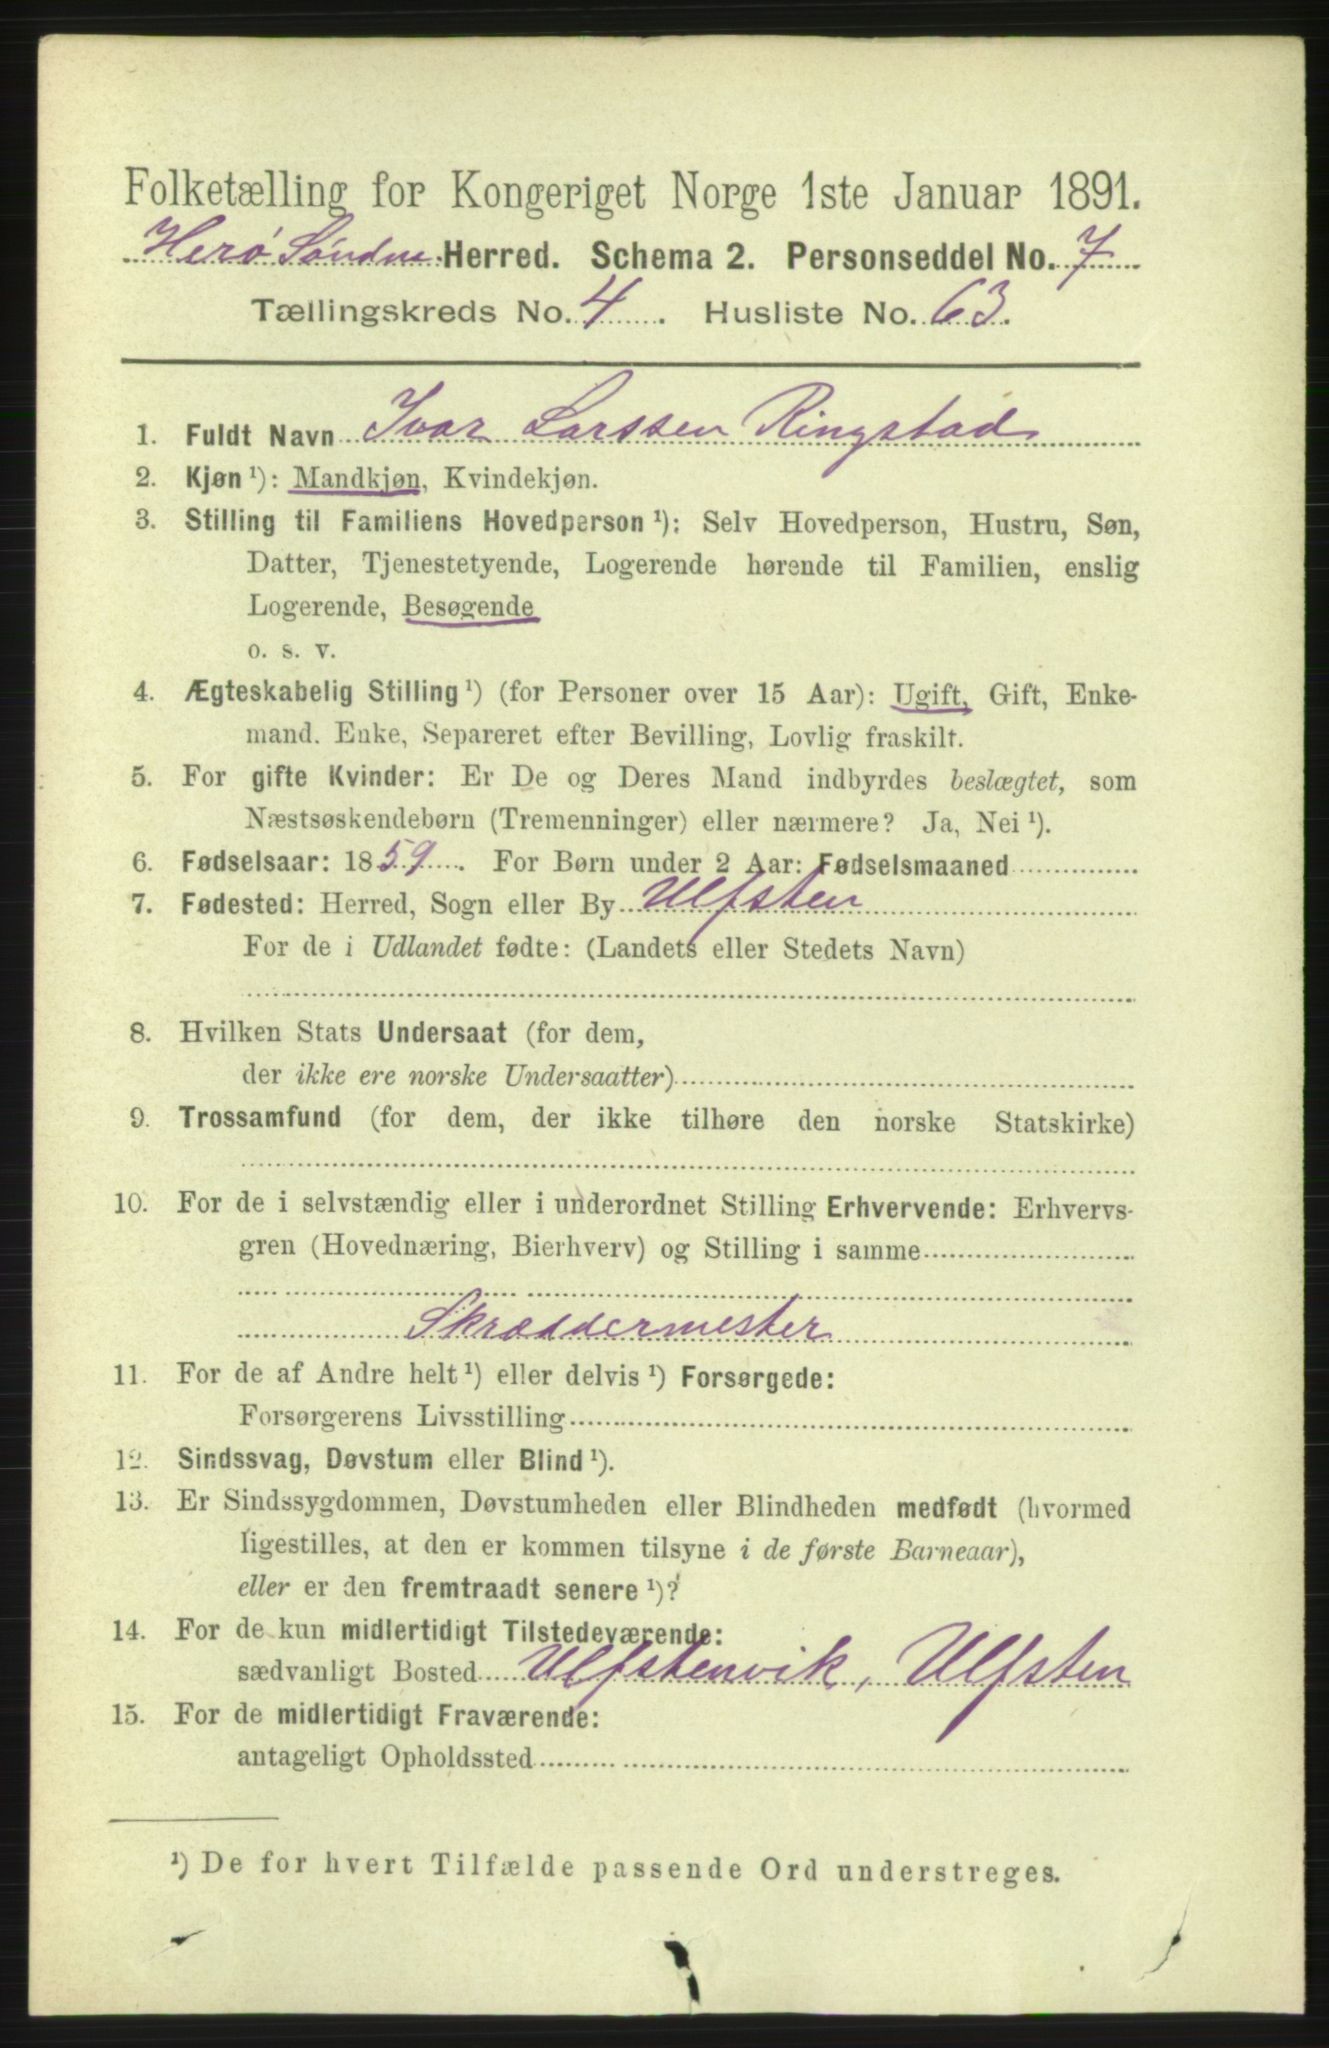 Folketælling for Kongeriget Norge 1ste Januar 1891.
Herø Søndre Herred. Schema 2. Personseddel No. 7
Tællingskreds No. 4. Husliste No. 63.
1. Fuldt Navn Ivar Larssen Ringstad
2. Kjøn ¹): Mandkjøn, Kvindekjøn.
3. Stilling til Familiens Hovedperson ¹): Selv Hovedperson, Hustru, Søn,
Datter, Tjenestetyende, Logerende hørende til Familien, enslig
Logerende, Besøgende
o. s. v.
4. Ægteskabelig Stilling ¹) (for Personer over 15 Aar): Ugift, Gift, Enke-
mand. Enke, Separeret efter Bevilling, Lovlig fraskilt.
5. For gifte Kvinder: Er De og Deres Mand indbyrdes beslægtet, som
Næstsøskendebørn (Tremenninger) eller nærmere? Ja, Nei ¹).
6. Fødselsaar: 1859. For Børn under 2 Aar: Fødselsmaaned
7. Fødested: Herred, Sogn eller By Ulfsten
For de i Udlandet fødte: (Landets eller Stedets Navn)
8. Hvilken Stats Undersaat (for dem,
der ikke ere norske Undersaatter)
9. Trossamfund (for dem, der ikke tilhøre den norske Statskirke)
10. For de i selvstændig eller i underordnet Stilling Erhvervende: Erhvervs-
gren (Hovednæring, Bierhverv) og Stilling i samme
Skræddermester
11. For de af Andre helt ¹) eller delvis ¹) Forsørgede:
Forsørgerens Livsstilling
12. Sindssvag, Døvstum eller Blind ¹).
13. Er Sindssygdommen, Døvstumheden eller Blindheden medfødt (hvormed
ligestilles, at den er kommen tilsyne i de første Barneaar),
eller er den fremtraadt senere ¹)?
14. For de kun midlertidigt Tilstedeværende:
sædvanligt Bosted Ulfstenvik, Ulfsten
15. For de midlertidigt Fraværende:
antageligt Opholdssted
¹) De for hvert Tilfælde passende Ord understreges.